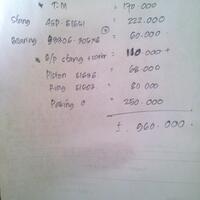 * T.M = 170.000
Stang ASP. 51641 = 222.000
Bearing = 60.000
* B/p stang + center = 110.000 +
Piston 51636 = 68.000
Ring 51607 = 80.000
Paking = 250.000
± 960.000